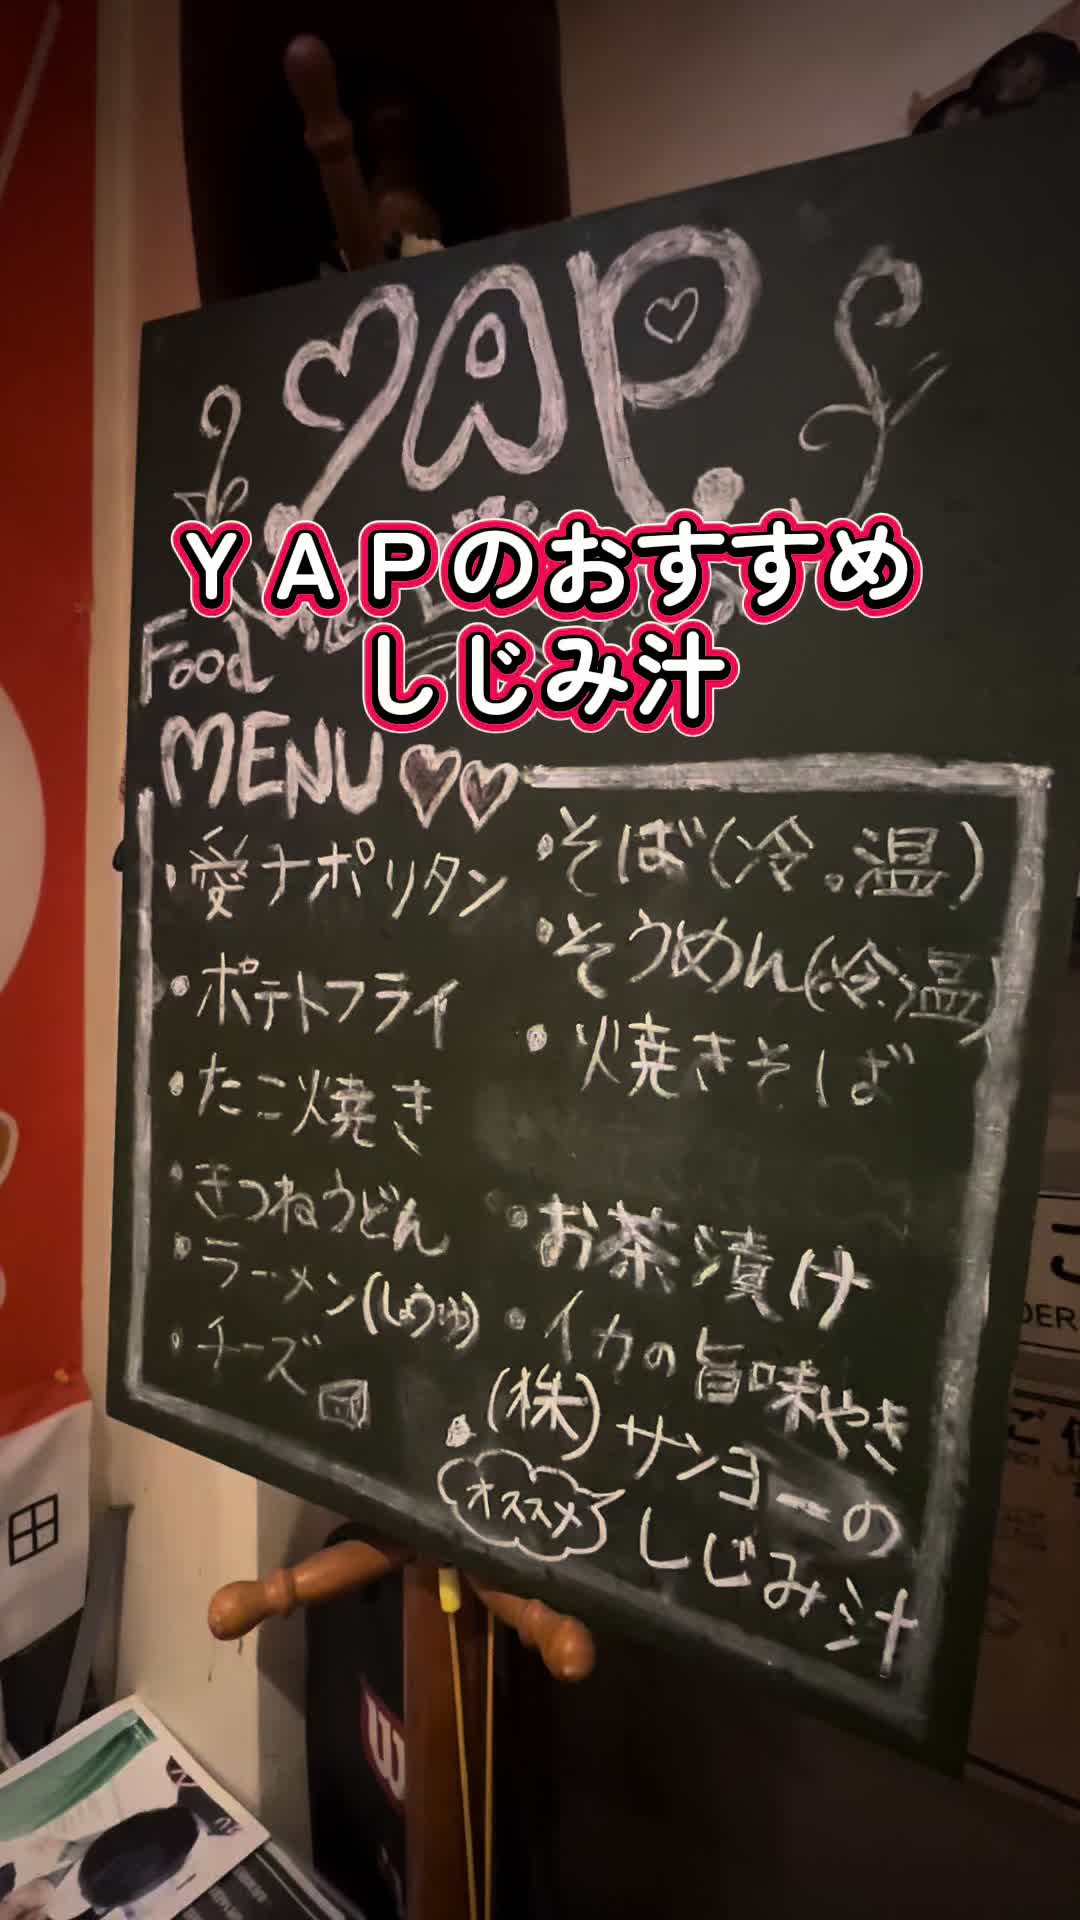 YAP
ＹＡＰのおすすめ
しじみ汁
Food
MENU
・愛ナポリタン
・ポテトフライ
・たこ焼き
・きつねうどん
・ラーメン(しょうゆ)
・チーズ
・そば(冷。温)
・そうめん(冷温)
・焼きそば
・お茶漬け
・イカの旨味やき
・(株)サンヨーの
オススメ
しじみ汁